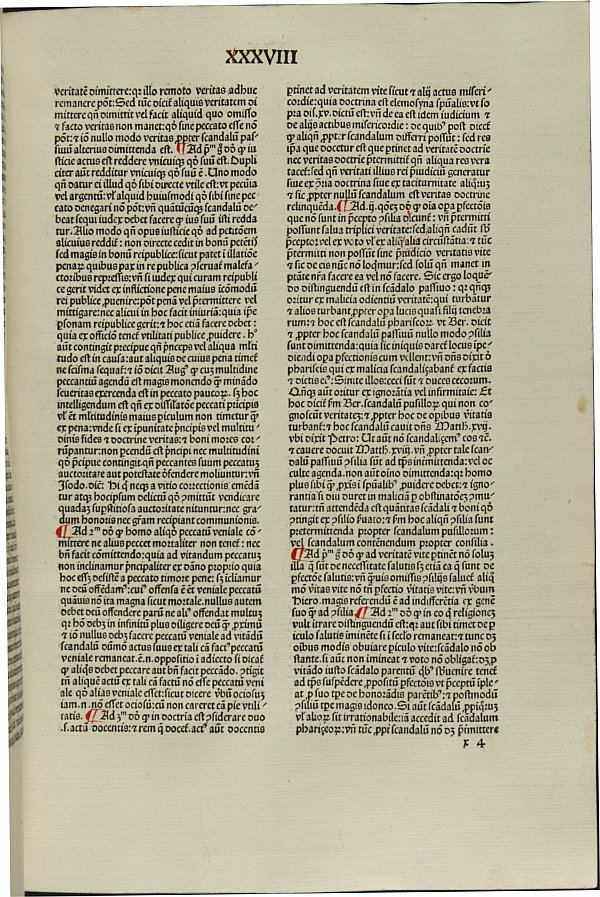 XXXVIII
veritatē dimittere: qꝛ illo remoto veritas adhuc
remanere pōt: Sed tūc dicit̄ aliquis veritatem di
mittere qn̄ dimittit vel facit aliquid quo omisso
et facto veritas non manet: qō sine peccato esse nō
pōt: et iō nullo modo veritas ꝓpter scandalū pas
siuū alterius dimittenda est. ¶ Ad pᵐ gͦ dō ꝙ iu
sticie actus est reddere vnicuiqꝫ qō suū est. Dupli
citer aūt redditur vnicuiqꝫ qō suū ē. Uno modo
qn̄ datur ei illud qō sibi directe vtile est: vt pecūia
vel argentū: vl̓ alquid huiusmodi qō sibi sine pec
cato denegari nō pōt: vn̄ quātūcūqꝫ scandalū de
beat sequi iudex debet facere ꝙ ius suū isti redda
tur. Alio modo qn̄ opus iusticie qō ad petitōem
alicuius reddit̄: non directe cedit in bonū petētis
sed magis in bonū reipublice: sicut patet ī illatōe
penaꝝ quibus pax in re publica ꝯseruat̄ malefa-
ctoribus repressis: vn̄ si iudex qui curam reipubli
ce gerit videt ex inflictione pene maius īcōmodū
rei publice ꝓuenire: pōt penā vel p̄termittere vel
mittigare: nec alicui in hoc facit iniuriā: quia ip̄e
ꝑsonam reipublice gerit: et hoc etiā facere debet:
quia ex officiō tenet̄ vtilitati publice ꝓuidere. Hͦ
aūt contingit precipue qn̄ p̄nceps vel aliqua ml̓ti
tudo est in causa: aut aliquis de cuius pena timet̄
ne scisma sequat̄: et iō dicit Augͦ ꝙ cuꝫ multidine
peccantiū agendū est magis monendo ꝙ̄ minādo
seueritas exercenda est in peccato paucoꝝ. sꝫ hoc
intelligendum est qn̄ ex dissilatōe peccati p̄ncipis
vl̓ et̄ ml̓titudinis maius piculum non timetur ꝙ̄
ex pena: vnde si ex īpunitate p̄ncipis vel multitu-
dinis fides et doctrine veritas: et boni mores cor-
rūpantur: non pcendū est p̄ncipi nec multitudini
qō p̄cipue contingit. qn̄ peccantes suum peccatuꝫ
auctoritate aut potestate ōfendere moliuntur: vn̄
Isodo. dic̄t Hi ꝗ neqꝫ a vitio correctionis emēda
tur atqꝫ hocipsum delictū qō ꝯmittūt vendicare
quadaꝫ supstitiosa auctoritate nituntur: nec gra-
dum honoris nec grām recipiant communionis.
¶ Ad 2ᵐ dō ꝙ homo aliqō peccatū veniale cō-
mittere ne alius peccet mortaliter non tenet̄: nec
bn̄ facit cōmittendo: quia ad vitandum peccatuꝫ
non inclinamur p̄ncipaliter ex dāno proprio quia
hoc esꝫ desistē a peccato timore pene; sꝫ īcliamur
ne deū offēdam̓: cui̓ offensa ē et̄ veniale peccatū
quāuis nō ita magna sicut mortale. nullus autem
debet deū offendere parū ne ali̓ offendat multuꝫ
qꝛ hō debꝫ in infinitū plus diligere deū ꝙ̄ ꝓximū
et iō nullus debꝫ facere peccatū veniale ad vitādū
scandalū dūmō actus suus ex tali cā fact̓ peccatū
veniale remaneat. ē.n. oppositio i adiecto si dicat̄
ꝙ aliqͥs debet peccare aut bn̄ facit peccādo. ꝯtigit
tn̄ aliquē actū ex tali cā factū nō esse peccatū veni
ale qō alias veniale esset: sicut dicere v̓bū ociosuꝫ
iam. n. nō esset ociosū: cū non caret cā pie vtili-
tatis. ¶ Ad 3ᵐ dō ꝙ in doctria est ꝯsiderare duo
.s. actū docentis: et rem ꝗ docet̄. act̓ aūt docentis
ꝑtinet ad veritatem vite sicut et alij actus miseri-
cordie: quia doctrina est elemosyna spūalis: vt so
pta dis. xv. dictū est: vn̄ de ea est idem iudicium et
de alijs actibus misericordie: de quibꝰ post dicet̄
ꝙ aliqn̄ ꝓpt̓r scandalum differri possūt: sed res
ip̄a que docetur est que ꝑtinet ad veritatē doctrie
nec veritas doctrie p̄termittit̄ qn̄ aliqua res vera
tacet̄: sed qn̄ veritati illius rei p̄iudiciū generatur
siue ex ꝯria doctrina siue ex taciturnitate aliqͬuꝫ
et sic ꝓpter nullū scandalum est veritas doctrie
relinquēda. ¶ Ad. ij. qōeꝫ dō ꝙ oīa opa ꝑfectōis
que nō sunt in p̄cepto ꝯsilia dicunt̄: vn̄ p̄termitti
possunt salua triplici veritate: sed aliqn̄ cadūt sb̓
p̄cepto: vel ex voto vl̓ ex aliqͣ alia circūstātia: et tūc
p̄termitti non possūt sine p̄iudicio veritatis vite
et sic de eis nūc nō loqͥmur: sed solū qn̄ manet in
ptāte nr̄a facere ea vel nō facere. Sic ergo loquē-
do distinguendū est in scādalo passiuo: qꝛ qn̄qꝫ
oritur ex malicia odientiū veritatē: qui turbatur
et alios turbant, ꝓpter opa lucis quasi filij tenebra
rum: et hoc est scandalū phariseoꝝ vt Ber. dicit
et ꝓpter hoc scandalū passiuū nullo modo ꝯsilia
sunt dimittenda: quia sic iniquis daret̄ locus īpe-
diendi opa ꝑfectionis cum vellent: vn̄ dn̄s dixit ð
phariseis qui ex malicia scandaliꝫabant̄ ex factis
et dictis eiꝰ: Sinite illos: ceci sūt et duces cecorum.
Qn̄qꝫ aūt oritur ex ignorātia vel infirmitate: Et
hoc dicit̄ fm Ber. scandalū pusilloꝝ qui non co-
gnoscūt veritateꝫ: et ꝓpter hoc de opibus v̓itatis
turbant̄: et hoc scandalū cauit dn̄s Matth. xvij.
vbi dixit Petro: Ut aūt nō scandaliꝫemꝰ eos et̄.
et cauere docuit Matth. xviij. vn̄ ꝓpter tale scan-
dalū passiuū ꝯsilia sūt ad tp̄s intermittenda: vel oc
culte agenda. non autē oīno dimittenda: qꝛ homo
plus sibi ꝙ̄ ꝓxīs ī spūalibꝰ ꝓuidere debet: et igno-
rantia si diu duret in maliciā ꝓ obstinatōeꝫ ꝯmu-
tatur: tn̄ attendēda est quātitas scādali et boni qō
ꝯtingit ex ꝯsilio fuato: et fm hoc aliqn̄ ꝯsilia sunt
pretermittenda propter scandalum pusillorum:
vel scandalum contēnendum propter consilia.
¶ Ad pᵐ gͦ dō ꝙ ad veritatē vite ꝑtinet nō soluꝫ
illa ꝗ sūt de necessitate salutis sꝫ etiā ea ꝗ sunt de
ꝑfectōe salutis: vn̄ quis omissis ꝯsilijs saluet̄ aliq̄
mō v̓itas vite nō tn̄ ꝑfectio v̓itatis vite: vn̄ v̓bum
Hiero. magis referendū ē ad indifferētia ex gene
suo ꝙ̄ ad ꝯsilia. ¶ Ad 2ᵐ dō ꝙ in eo ꝗ religioneꝫ
vult ītrare distinguendū est: qꝛ aut sibi timet de pi
iculo salutis īminēte si ī sclo remaneat: et tunc dꝫ
oībus modis obuiare piculo vite: scādalo nō ob
stante. si aūt non imineat et voto nō obligat̄: dꝫ ꝓ
vitādo iusto scādalo parentū qͦbꝰ sb̓uenire tenet̄
ad tp̄s suspēdere ꝓpositū ꝑfectōis vt p̄ceptū īple-
at ꝓ suo tp̄e de honorādis parētibꝰ: et postmodū
ꝯsiliū tp̄e magis idoneo. Si aūt scādalū ꝓpiqͦruꝫ
vl̓ alioꝝ sit irrationabile: iā accedit ad scādalum
phariseoꝝ: vn̄ tūc ꝓpt̓ scādalū nō dꝫ p̄mittere
x 4